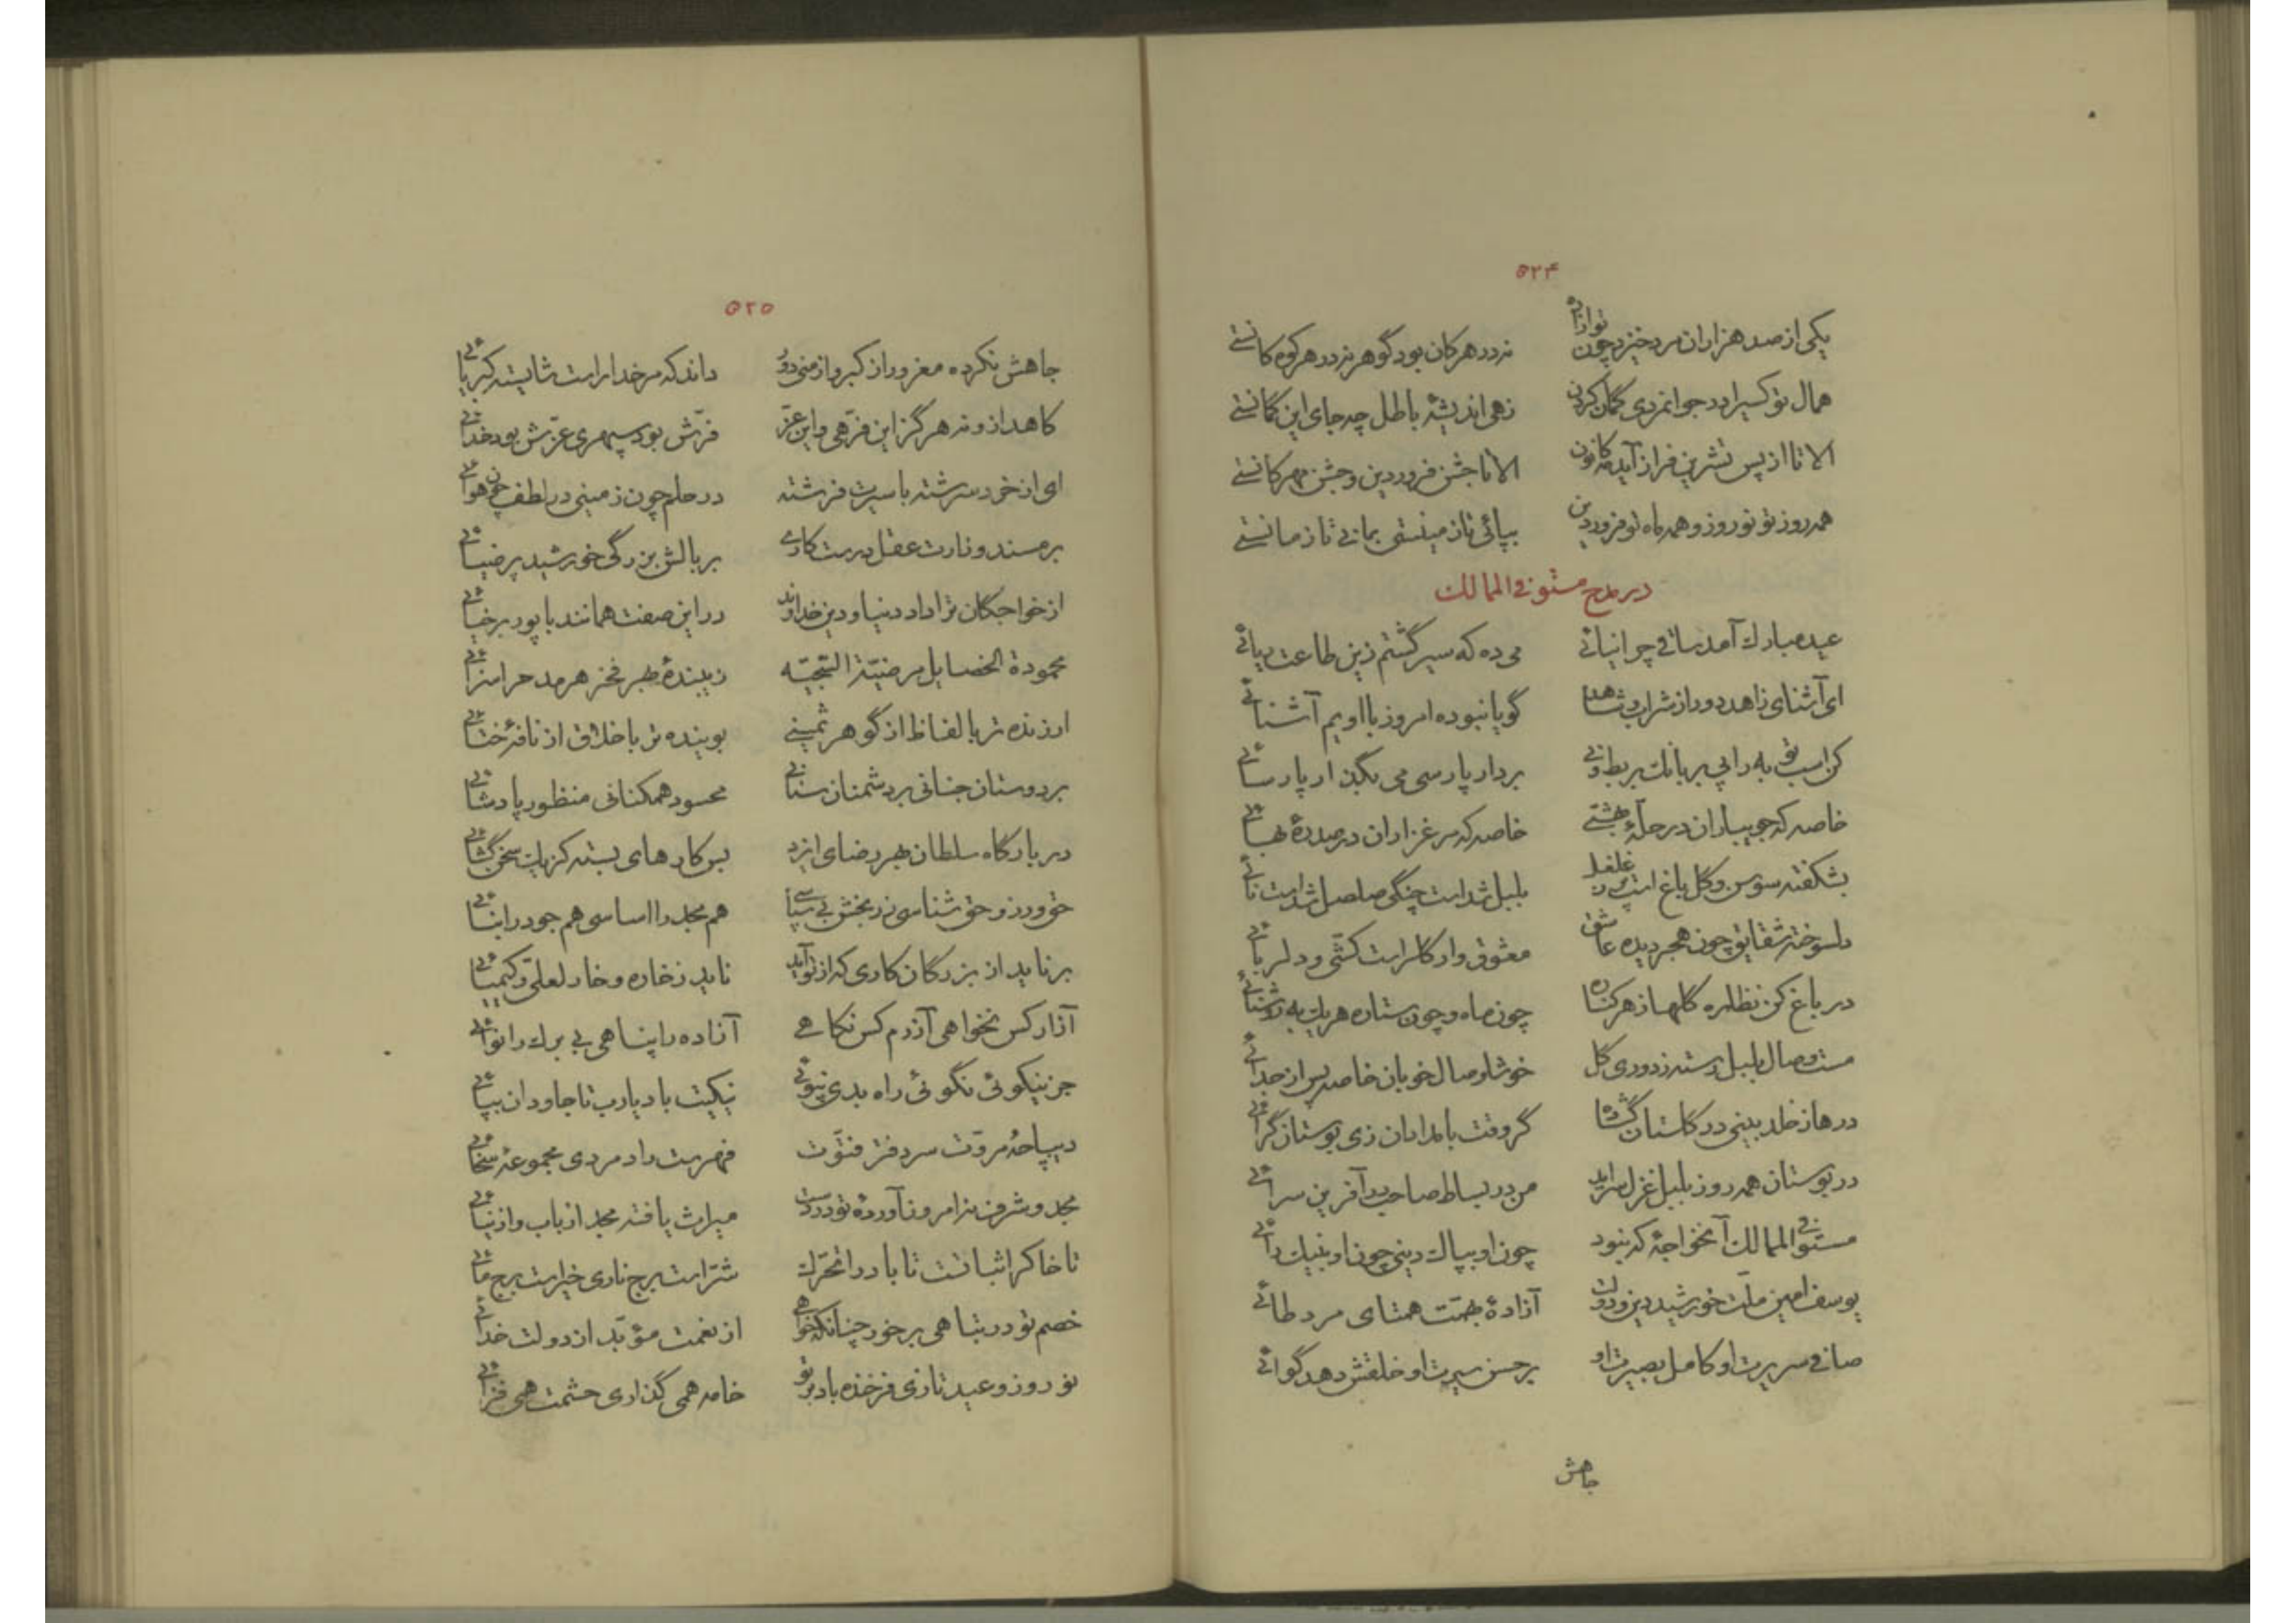 ۵۲۴
یکی از صد هزاران مرد خیزد چون تو ازاده نه در هر کان بود گوهر نه در هر کوه کانستی
همال تو کسیرا در جوانمردی گمان کردن زهی اندیشهٔ باطل چه جای این گمانستی
الا تا از پس تشرین فراز آید مه کانون الا تا جشن فروردین و جشن مهرکانستی
همه روز تو نوروز و همه ماه تو فروردین بپائی تا زمینستی بمانی تا زمانستی
در مدح مستوفی الممالک
عید مبارک آمد ساقی چرا نیائی می ده که سیر گشتم زین طاعت ریائی
ای آشنای زاهد دور از شراب و شاهد گویا نبوده امروز با اویم آشنائی
کن اسب تو به را پی بر بانک بربط و نی بردار پارسی می بگذار پارسائی
خاصه که جویباران در حلّهٔ بهشتی خاصه که مرغزاران در صدرهٔ بهائی
بشکفته سوسن و گل باغ است پر ز غلغل بلبل شد است چنگی صلصل شد است نائی
دلسوخته شقایق چون هجر دیده عاشق معشوق وار گلراست کشّی و دلربائی
در باغ کن نظاره گلها ز هر کناره چون ماه و چون ستاره هر یک به روشنائی
مست وصال بلبل رسته ز دوری گل خوشا وصال خوبان خاصه پس از جدائی
درها ز خلد بینی در گلستان گشاده گر وقت بامدادان زی بوستان گرائی
در بوستان همه روز بلبل غزل سراید من در بساط صاحب در آفرین سرائی
مستوفی الممالک آنخواجهٔ که نبود چون او بپاک دینی چون او بنیک رائی
یوسف امین ملّت خورشید دین و دولت آزادهٔ بهمّت همتای مرد طائی
صافی سریرت او کامل بصیرت او بر حسن سیرت او خلقش دهد گوائی
جاهش
۵۲۵
جاهش نکرده مغرور از کبر و از منی دور داند که مر خداراست شایسته کبریائی
کاهد از و نه هرگز این فرّهی و این عزّ فرّش بود سپهری عزّش بود خدائی
ای از خرد سرشته با سیرت فرشته در حلم چون زمینی در لطف چون هوائی
بر مسند وزارت عقل درست کاری بر بالش بزرگی خورشید پر ضیائی
از خواجگان ترا داد دنیا و دین خداوند در این صفت همانند با پور برخیائی
محمودة الخصایل مرضیّة السّجیّه زیبندهٔ بهر فخر هر مدح را سزائی
ارزنده تر بالفاظ از گوهر ثمینی بوینده تر باخلاق از نافهٔ ختائی
بر دوستان جنانی بر دشمنان سنانی محسود همکنانی منظور پادشائی
در بارگاه سلطان بهر رضای ایزد بس کارهای بسته کز یک سخن گشائی
حق ورز و حق شناسی زر بخش بی سپاسی هم مجد را اساسی هم جود را بنائی
بر ناید از بزرگان کاری که از تو آید ناید ز خاره و خار لعلی و کیمیائی
آزار کس نخواهی آزرم کس نکاهی آزاده را پناهی بی برک را نوائی
جز نیکوئی نگوئی راه بدی نپوئی نیکیت باد یارب تا جاودان بپائی
دیباچهٔ مروّت سر دفتر فتوّت فهرست رادمردی مجموعهٔ سخائی
مجد و شرف نه امروز آوردهٔ تو در دست میراث یافته مجد از باب و از نیائی
تا خاکرا ثباتست تا باد را تحرّک شرّ است برج ناری خیر است برج مائی
خصم تو در تباهی بر خور چنانکه خواهی از نعمت مؤبّد از دولت خدائی
نوروز و عید تازی فرخنده باد بر تو خامه همی گذاری حشمت همی فزائی